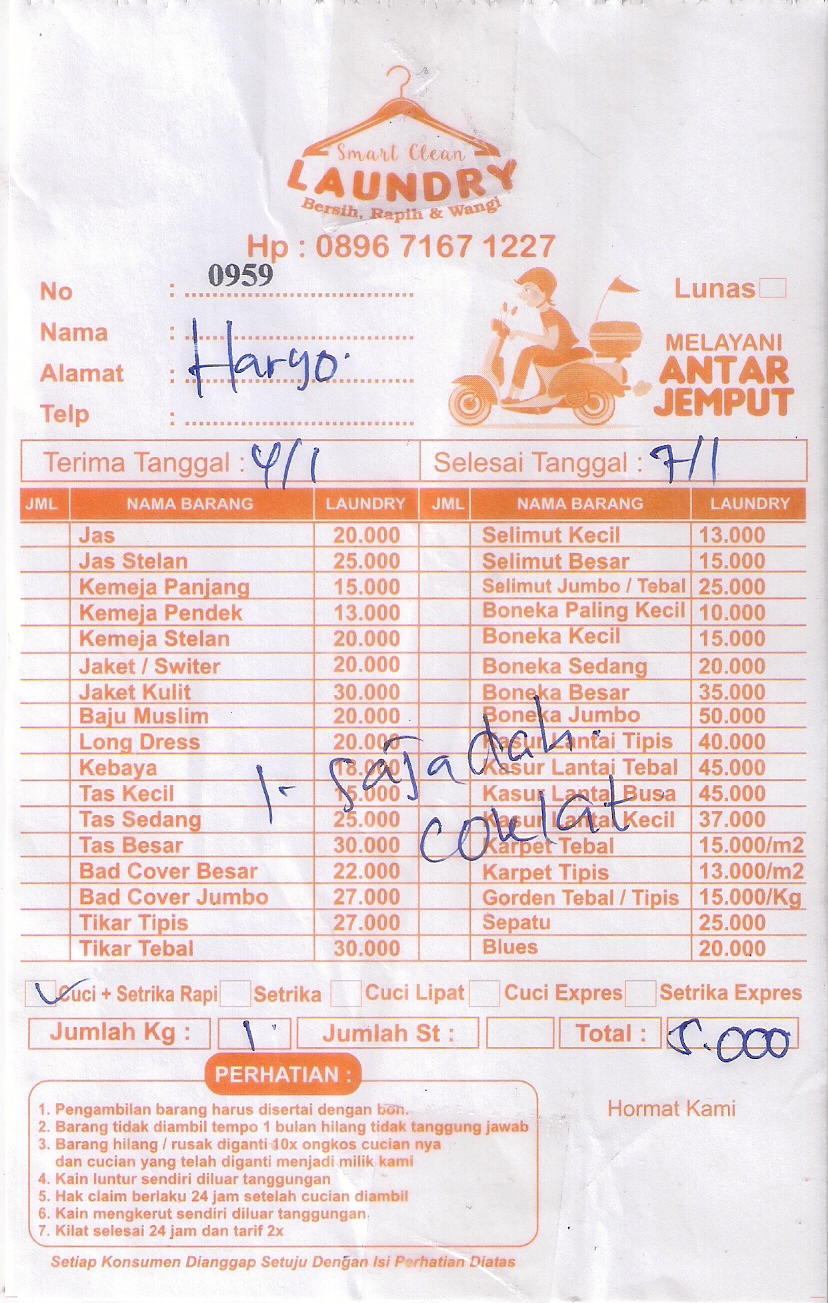 Smart Clean
LAUNDRY
Bersih, Rapih & Wangi
Hp : 0896 7167 1227
No : 0959
Lunas
Nama :
Alamat : Haryo.
Telp :
MELAYANI
ANTAR
JEMPUT
Terima Tanggal : 4/1 Selesai Tanggal : 7/1
JML NAMA BARANG LAUNDRY JML NAMA BARANG LAUNDRY
Jas 20.000 Selimut Kecil 13.000
Jas Stelan 25.000 Selimut Besar 15.000
Kemeja Panjang 15.000 Selimut Jumbo / Tebal 25.000
Kemeja Pendek 13.000 Boneka Paling Kecil 10.000
Kemeja Stelan 20.000 Boneka Kecil 15.000
Jaket / Switer 20.000 Boneka Sedang 20.000
Jaket Kulit 30.000 Boneka Besar 35.000
Baju Muslim 20.000 Boneka Jumbo 50.000
Long Dress 20.000 Kasur Lantai Tipis 40.000
Kebaya 18.000 Kasur Lantai Tebal 45.000
Tas Kecil Kasur Lantai Busa 45.000
Tas Sedang 25.000 Kasur Lantai Kecil 37.000
Tas Besar 30.000 Karpet Tebal 15.000/m2
Bad Cover Besar 22.000 Karpet Tipis 13.000/m2
Bad Cover Jumbo 27.000 Gorden Tebal / Tipis 15.000/Kg
Tikar Tipis 27.000 Sepatu 25.000
Tikar Tebal 30.000 Blues 20.000
1- sajadah.
coklat
Cuci + Setrika Rapi Setrika Cuci Lipat Cuci Expres Setrika Expres
Jumlah Kg : 1. Jumlah St : Total : 5.000
PERHATIAN :
Hormat Kami
1. Pengambilan barang harus disertai dengan bon.
2. Barang tidak diambil tempo 1 bulan hilang tidak tanggung jawab
3. Barang hilang / rusak diganti 10x ongkos cucian nya
dan cucian yang telah diganti menjadi milik kami
4. Kain luntur sendiri diluar tanggungan
5. Hak claim berlaku 24 jam setelah cucian diambil
6. Kain mengkerut sendiri diluar tanggungan
7. Kilat selesai 24 jam dan tarif 2x
Setiap Konsumen Dianggap Setuju Dengan Isi Perhatian Diatas